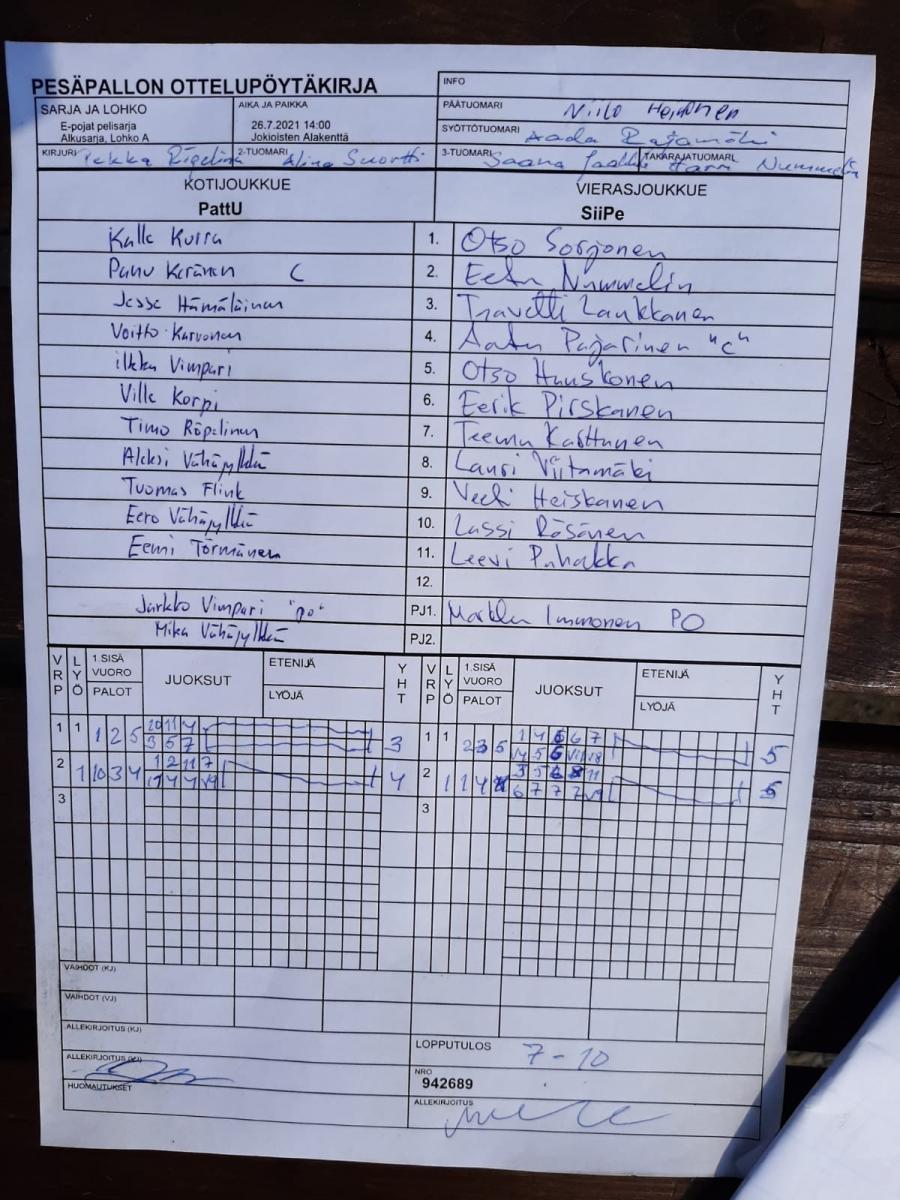 PESÄPALLON OTTELUPÖYTÄKIRJA
INFO
SARJA JA LOHKO
E-pojat pelisarja
Alkusarja, Lohko A
AIKA JA PAIKKA
26.7.2021 14:00
Jokioisten Alakenttä
PÄÄTUOMARI Niilo
SYÖTTÖTUOMARI Aada Rajamäki
KIRJURI Pekka
2-TUOMARI Alina Suortti
3-TUOMARI Saana
TAKARAJATUOMARI Harri Nummelin
KOTIJOUKKUE
PattU
VIERASJOUKKUE
SiiPe
Kalle Kurra 1. Otso Sorjonen
Panu Keränen C 2. Eetu Nummelin
Jesse Hämäläinen 3. Travetti Laukkanen
Voitto Karvonen 4. Aatu Pajarinen "C"
ilkka Vimpari 5. Otso Huuskonen
Ville Korpi 6. Eerik Pirskanen
Timo Röpelinen 7. Teemu Karttunen
Aleksi Vähäjylkkä 8. Lauri Viitamäki
Tuomas Flink 9. Veeti Heiskanen
Eero Vähäjylkkä 10. Lassi Räsänen
Eemi Törmänen 11. Leevi Puhakka
12.
Jarkko Vimpari "po" PJ1. Markku Immonen PO
Mika Vähäjylkkä PJ2.
VRP LYÖ 1.SISÄ VUORO PALOT JUOKSUT ETENIJÄ LYÖJÄ YHT VRP LYÖ 1.SISÄ VUORO PALOT JUOKSUT ETENIJÄ LYÖJÄ YHT
1 1 1 2 5 10 11 4 1 1 2 3 5 1 4 5 6 7
3 5 7 3 5
2 1 10 3 4 1 2 11 7 2 1 1 4
4 4 4 5
3 3
VAIHDOT (KJ)
VAIHDOT (VJ)
ALLEKIRJOITUS (KJ)
ALLEKIRJOITUS (VJ)
HUOMAUTUKSET
LOPPUTULOS 7-10
NRO
942689
ALLEKIRJOITUS